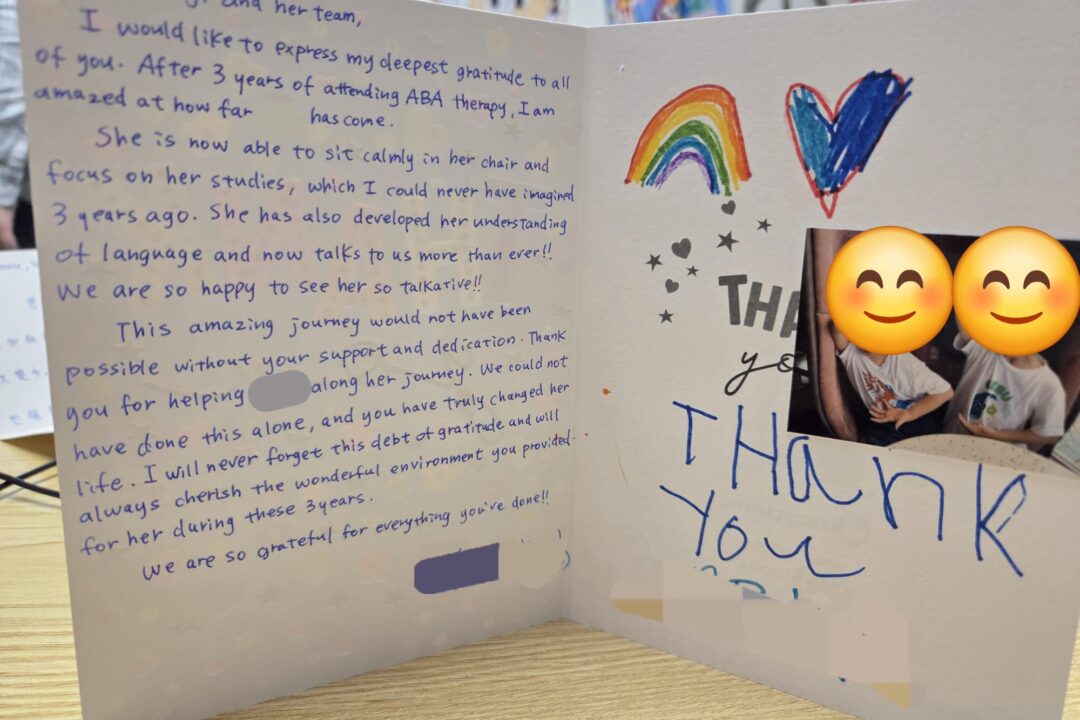 and her team,
I would like to express my deepest gratitude to all
of you. After 3 years of attending ABA therapy, I am
amazed at how far has come.
She is now able to sit calmly in her chair and
focus on her studies, which I could never have imagined
3 years ago. She has also developed her understanding
of language and now talks to us more than ever!!
We are so happy to see her so talkative!!
This amazing journey would not have been
possible without your support and dedication. Thank
you for helping along her journey. We could not
have done this alone, and you have truly changed her
life. I will never forget this debt of gratitude and will
always cherish the wonderful environment you provided
for her during these 3 years.
We are so grateful for everything you've done!!
THA
yo
THank
You